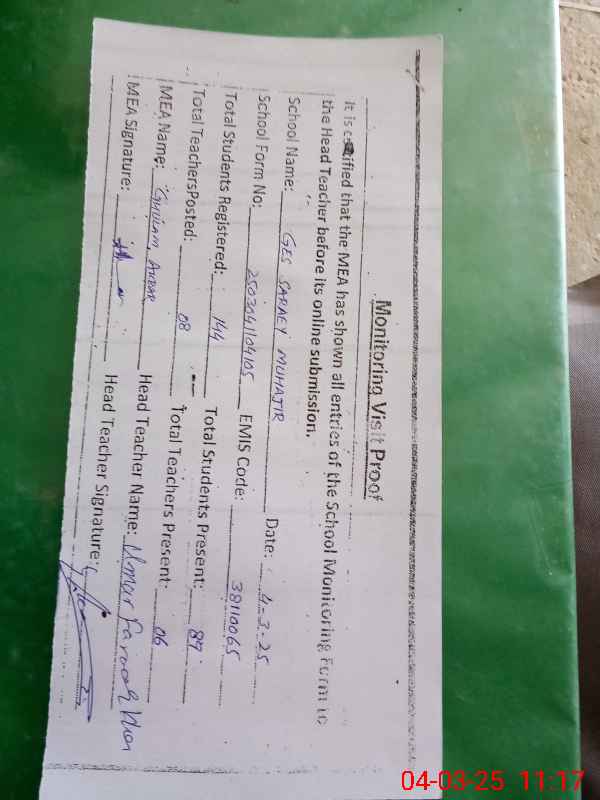 Monitoring Visit Proof
It is certified that the MEA has shown all entries of the School Monitoring Form to
the Head Teacher before its online submission.
School Name: GES SARAEY MUHAJIR Date: 4-3-25
School Form No: 2503041104105 EMIS Code: 38110065
Total Students Registered: 144 Total Students Present: 89
Total TeachersPosted: 08 Total Teachers Present: 06
MEA Name: Ghulam Akbar Head Teacher Name: Umar Farooq Khan
MEA Signature: Head Teacher Signature:
04-03-25 11:17